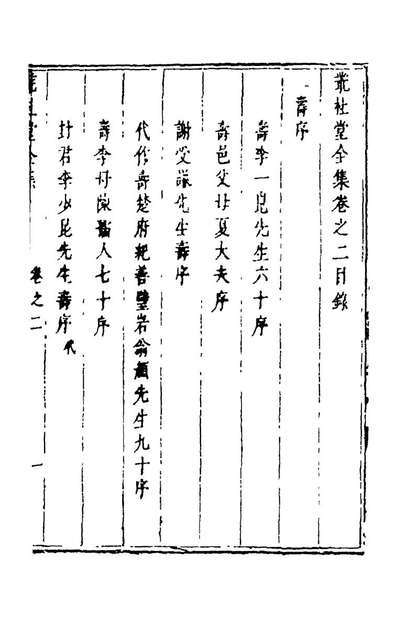 叢社堂全集卷之二目錄
壽序
壽李一崑先生六十序
壽邑父母夏大夫序
謝受謙先生壽序
代作壽楚府紀善璧岩翁顏先生九十序
壽李母陳孺人七十序
封君李少崑先生壽序代
叢社堂全集 卷之二 一